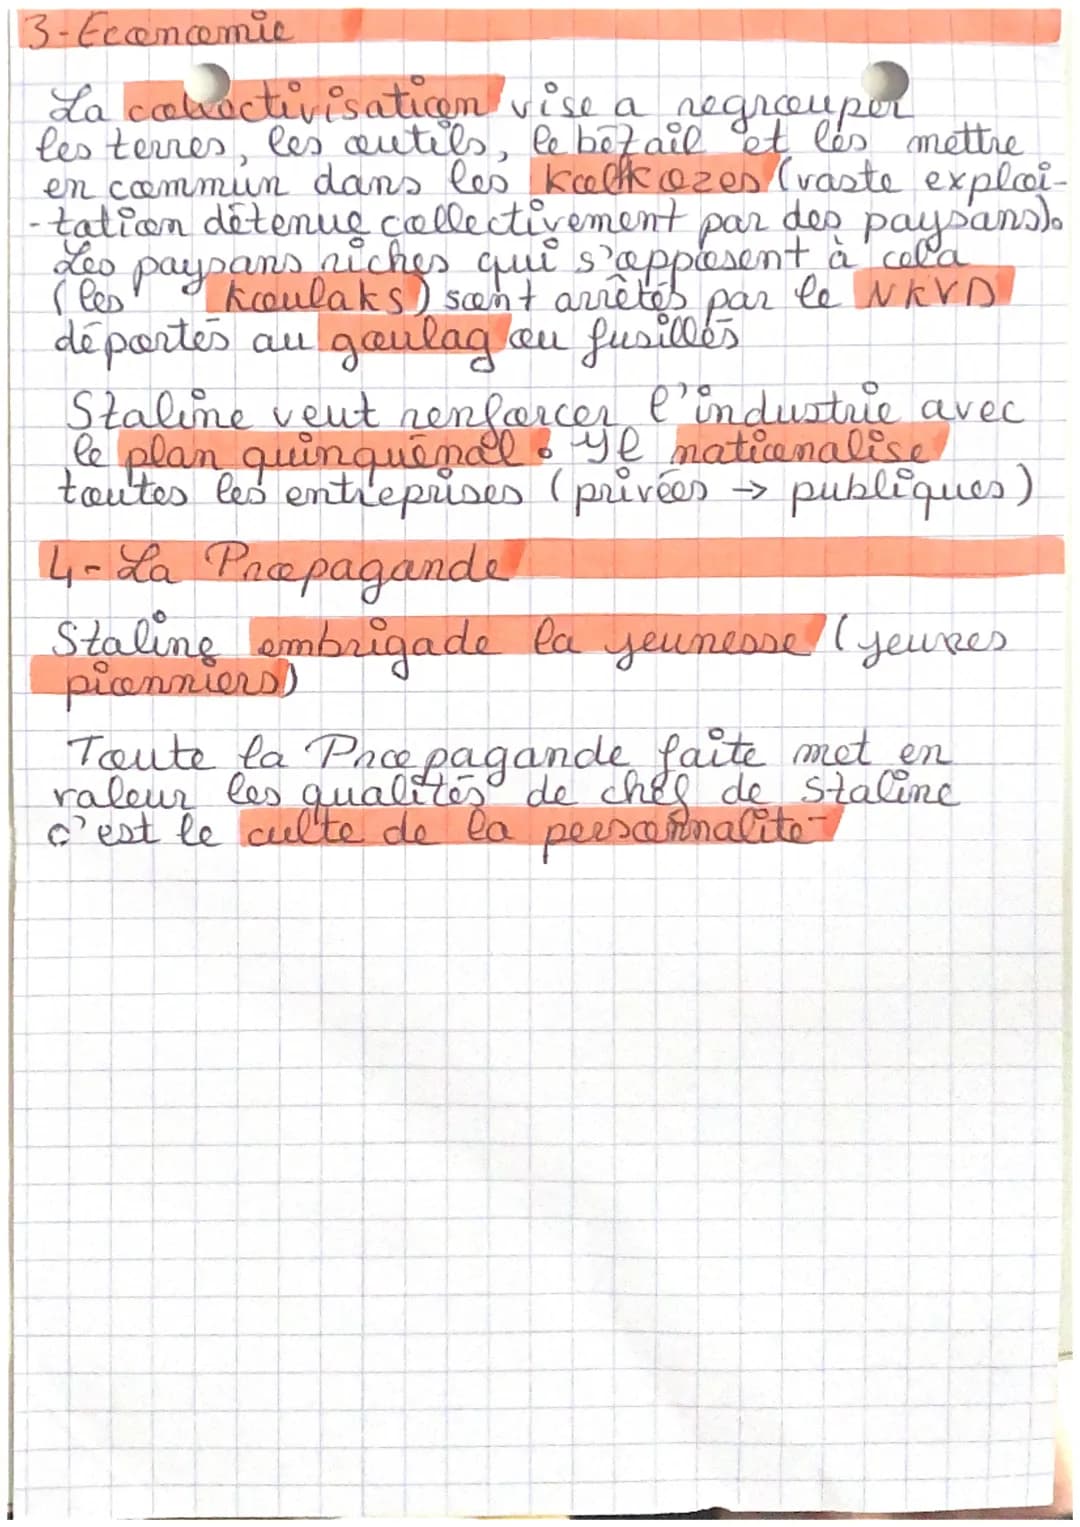 3-Economie
La collectivisation vise a regrouper
les terres, les outils, le bétail et les mettre
en commun dans les kolkozes (vaste exploi-
-tation détenue collectivement par des paysans).
Les paysans riches qui s'opposent à cela
(les koulaks) sont arrêtés par le NKVD
déportés au goulag ou fusillés
Staline veut renforcer l'industrie avec
le plan quinquénal. Il nationalise
toutes les entreprises (privées → publiques)
4-La Propagande
Staline embrigade la jeunesse (jeunes
pionniers)
Toute la Propagande faite met en
valeur les qualités de chef de Staline
c'est le culte de la personnalité